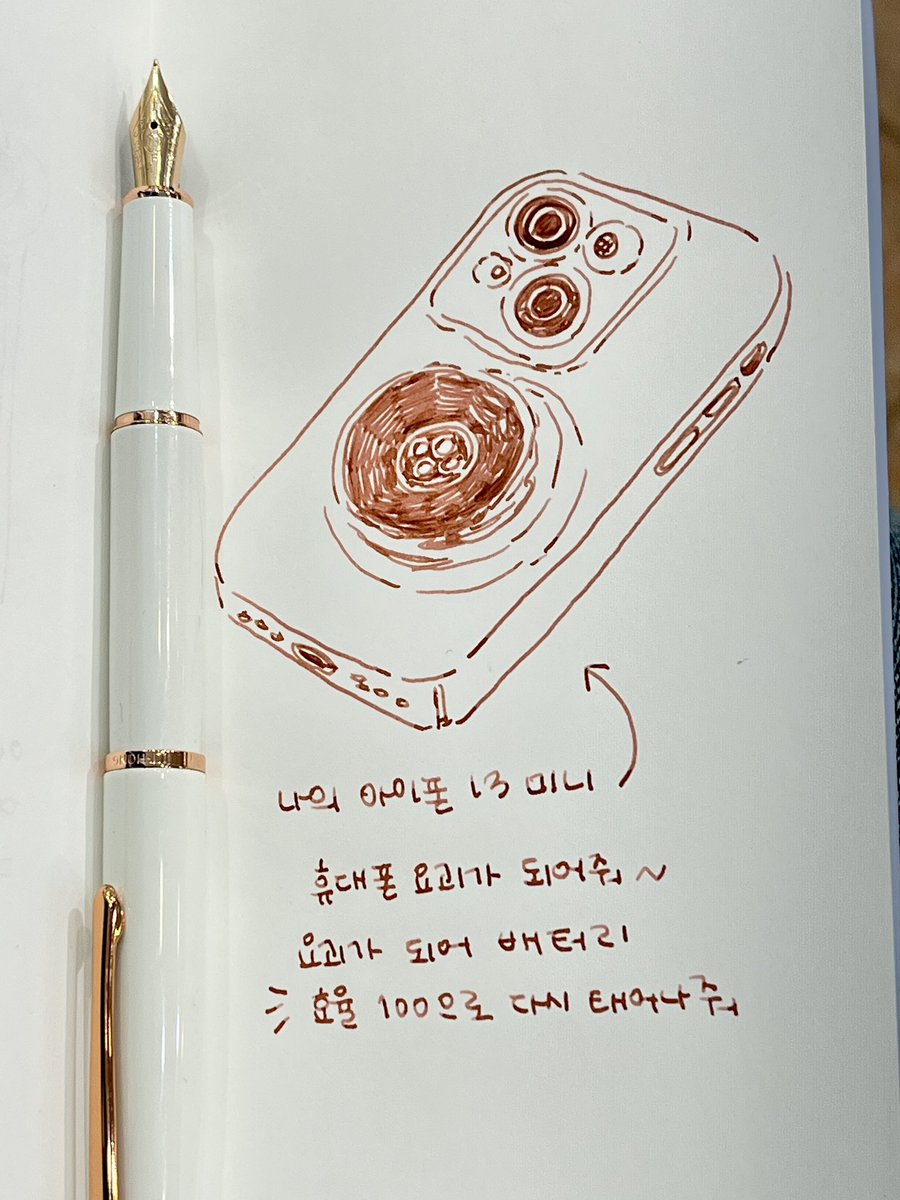 나의 아이폰 13 미니
휴대폰 요괴가 되어줘~
요괴가 되어 배터리
효율 100으로 다시 태어나줘